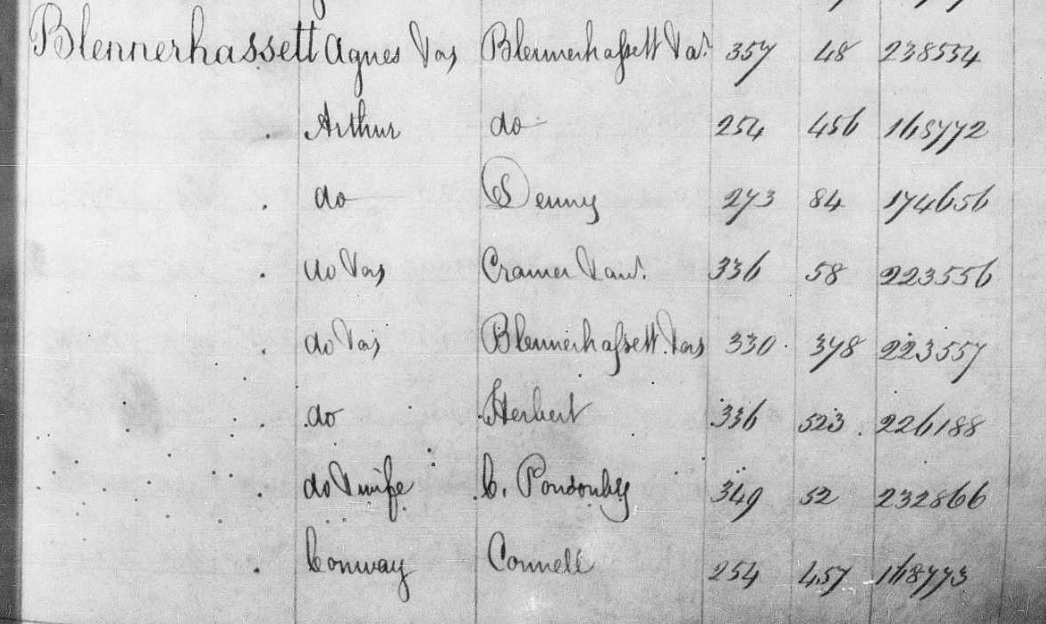 Blennerhassett Agnes &as Blennerhassett &ar 357 48 238554
Arthur do 254 456 168772
do Denny 273 84 174656
do &as Cramer &anr 336 58 223556
do &as Blennerhassett &as 330 378 223557
do Herbert 336 523 226188
do &wife C. Ponsonby 349 52 232866
Conway Connell 254 457 168773